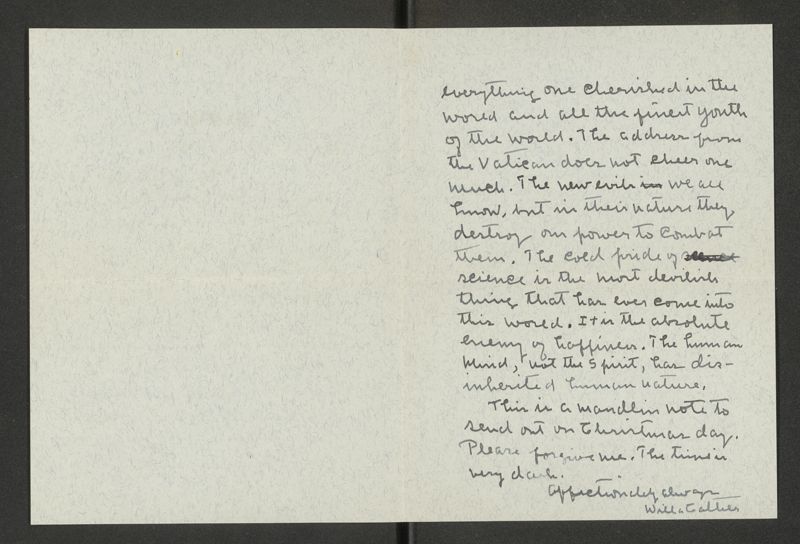 everything one cherished in the
world and all the finest youth
of the world. The address from
the Vatican does not cheer one
much. The new evils we all
know, but in their nature they
destroy our power to combat
them. The cold pride of
science is the most devilish
thing that has ever come into
this world. It is the absolute
enemy of happiness. The human
mind, not the spirit, has dis-
inherited human nature.
This is a maudlin note to
send out on Christmas day.
Please forgive me. The time is
very dark.
Affectionately always
Willa Cather